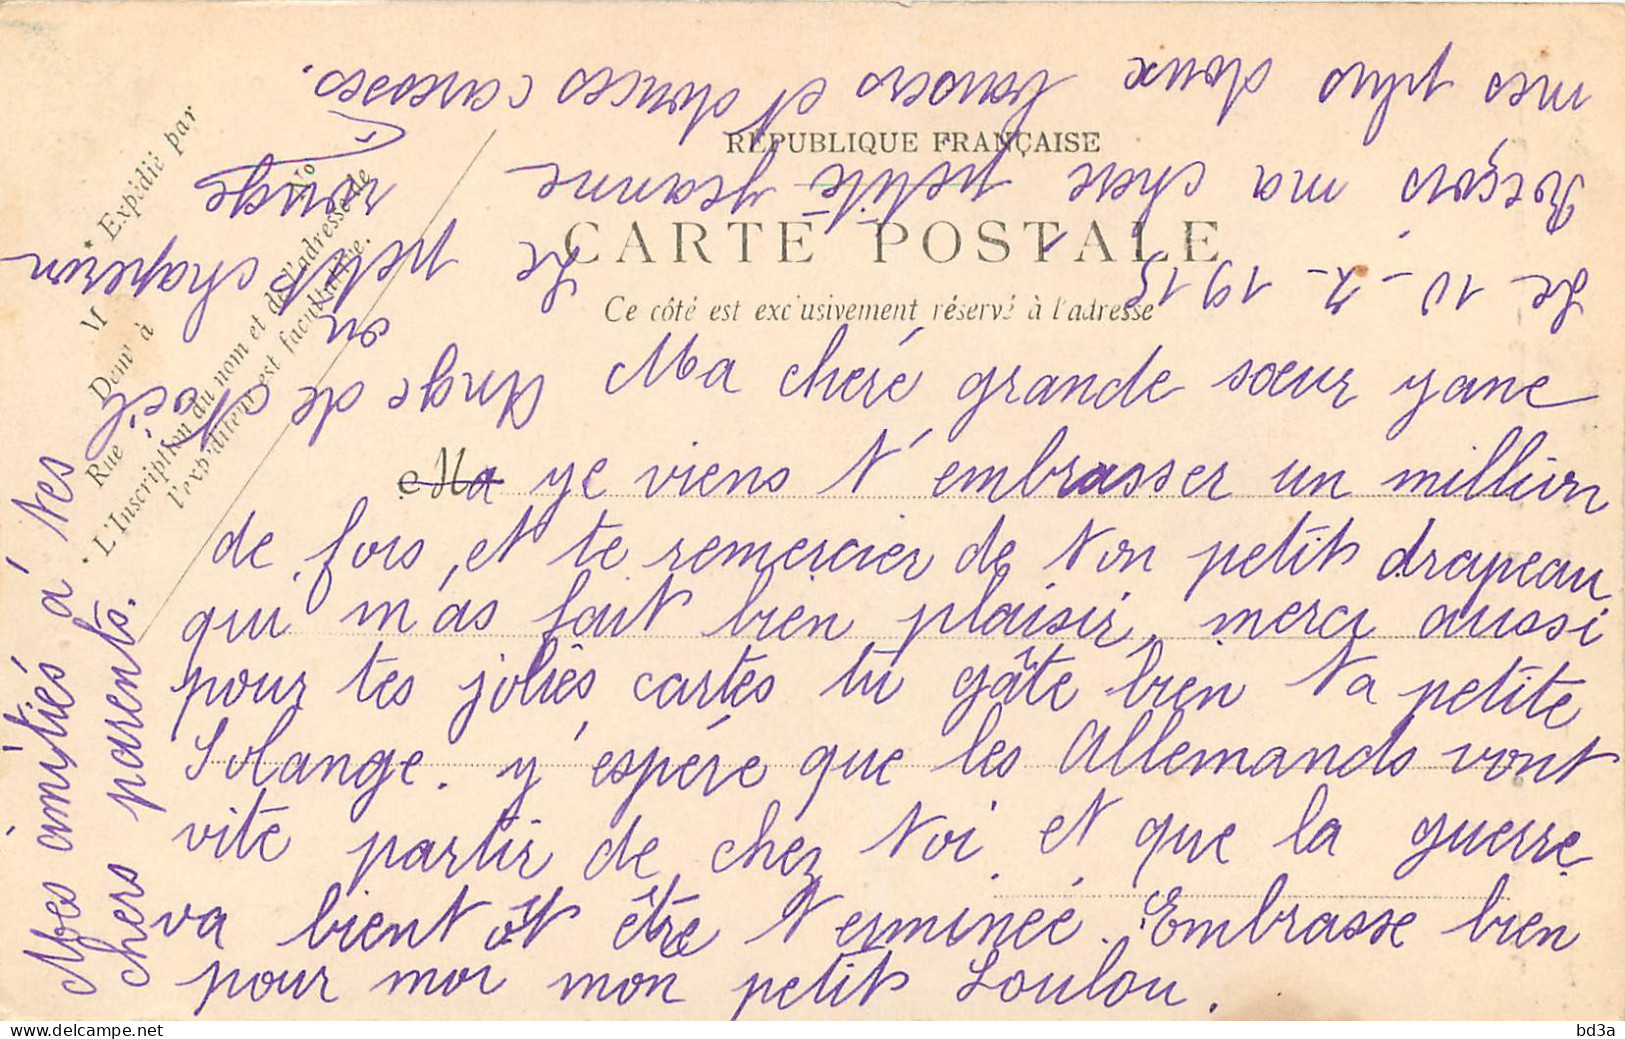 RÉPUBLIQUE FRANÇAISE
CARTE POSTALE
Ce côté est exclusivement réservé à l'adresse
* Expédié par
M
Dem' à
Rue
No
* L'Inscription du nom et de l'adresse de
l'expéditeur est facultative.
Le 10-2-1915
Ma cheré grande sœur yane
Ma ye viens t'embrasser un million
de fois, et te remercier de ton petit drapeau
qui m'as fait bien plaisir, merci aussi
pour tes joliés cartes tu gâte bien ta petite
Solange. y'éspére que les Allemands vont
vite partir de chez toi et que la guerre
va bientot être terminée. Embrasse bien
pour moi mon petit Loulou.
Mes amitiés á tes
chers parents.
Reçois ma chere petite yeanne
mes plus doux baisers et douces caresses.
Le petit chaperon
rouge
ou
Ange de Noël
bd3a